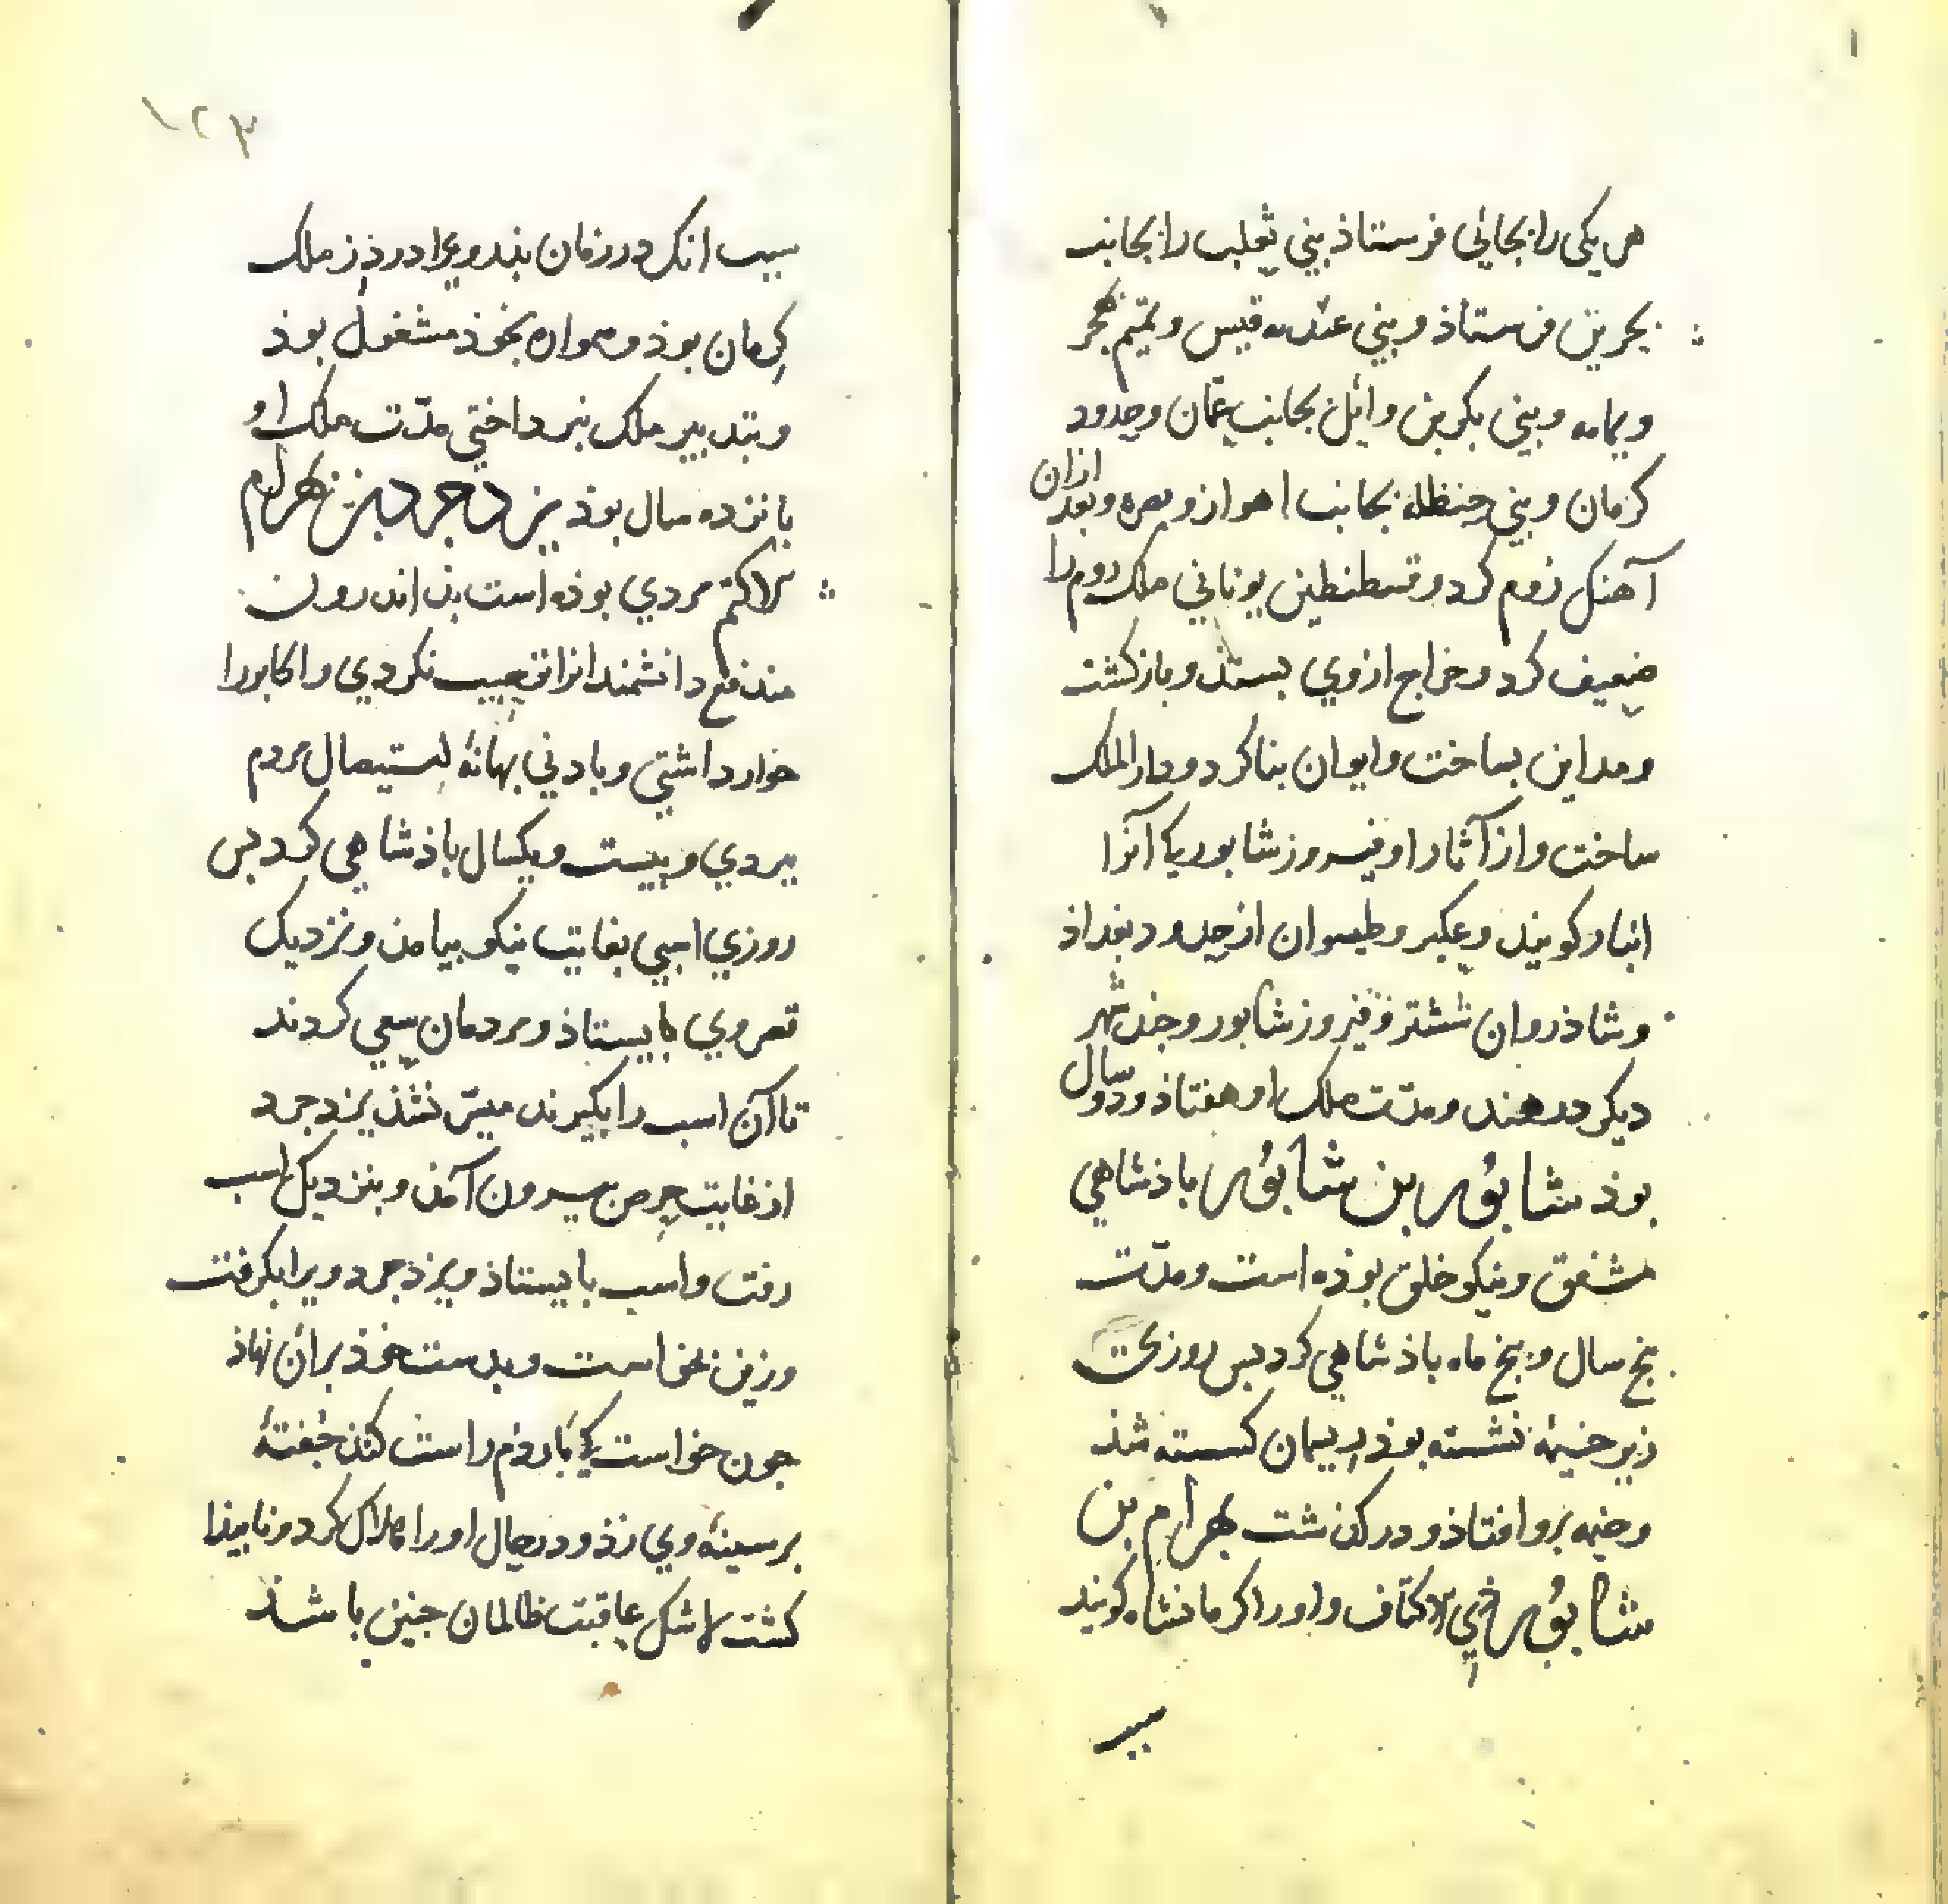 هر یکی را بجائی فرستاذ بنی ثعلب را بجانب
بحرین فرستاذ و بنی قیس و تمیم هجر
و یمامه و بنی بکر بن وائل بجانب عمان و حدود
کرمان و بنی حنظله بجانب اهواز و بصره و بعد ازان
آهنک روم کرد و قسطنطین یونانی ملک روم را
ضعیف کرد و خراج ازوي بستذ و بازکشت
و مداین بساخت و ایوان بنا کرد و دار الملک
ساخت و از آثار او فیروز شابور یکی آنرا
انبار کویند و عکبر و طیسوان از حدود بغداذ
و شاذروان ششتر و فیروز شابور و جند شهر
دیکر در هند و مدّت ملک او هفتاذ و دو سال
بوذ شابور بن شابور باذشاهي
مشفق و نیکو خلق بوذه است و مدّت
بنج سال و بنج ماه باذشاهي کرد بس روزی
زیر خیمهٔ نشسته بوذ ریسمان کسسته شذ
و خیمه برو افتاذ و درکذشت بهرام بن
شابور ذي الاکتاف و او را کرمانشاه کویند
سبب
۱۲۳
سبب انک در زمان بذر و برادر در ملک
کرمان بوذ و همواره بخوذ مشغول بوذ
و بتدبیر ملک نبرداختي مدّت ملک او
بانزده سال بوذ یزدجرد بن بهرام
مردي بوذه است بذ اندرون
هیج دانشمند را نکردي و اکابر را
خوار داشتي و بادني بهانهٔ استیصال مردم
بکردي و بیست و یکسال باذشاهي کرد بس
روزي اسبي بغایت نیکو بیامذ و نزدیک
قصر وي بایستاذ و مردمان سعي کردند
تا آن اسب را بکیرند میسّر نشذ یزدجرد
از غایت حرص بیرون آمذ و بنزدیک اسب
رفت و اسب بایستاذ و یزدجرد ویرا بکرفت
و زین بخواست و بدست خوذ بران نهاذ
جون خواست کی باردم راست کند جفتهٔ
بر سینهٔ وي زذ و در حال او را هلاک کرد و نابیذا
کشت لاشک عاقبت ظالمان جنین باشذ